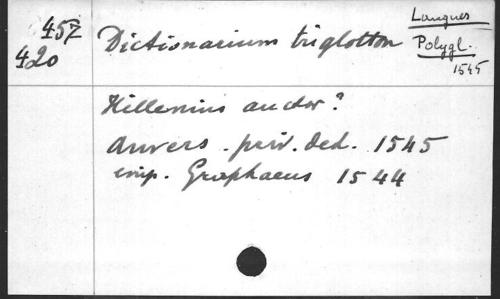 457
420
Dictionarium triglotton
Langues
Polygl.
1545
Hillenius auctor?
Anvers. priv. ded. 1545
imp. Graphaeus 1544